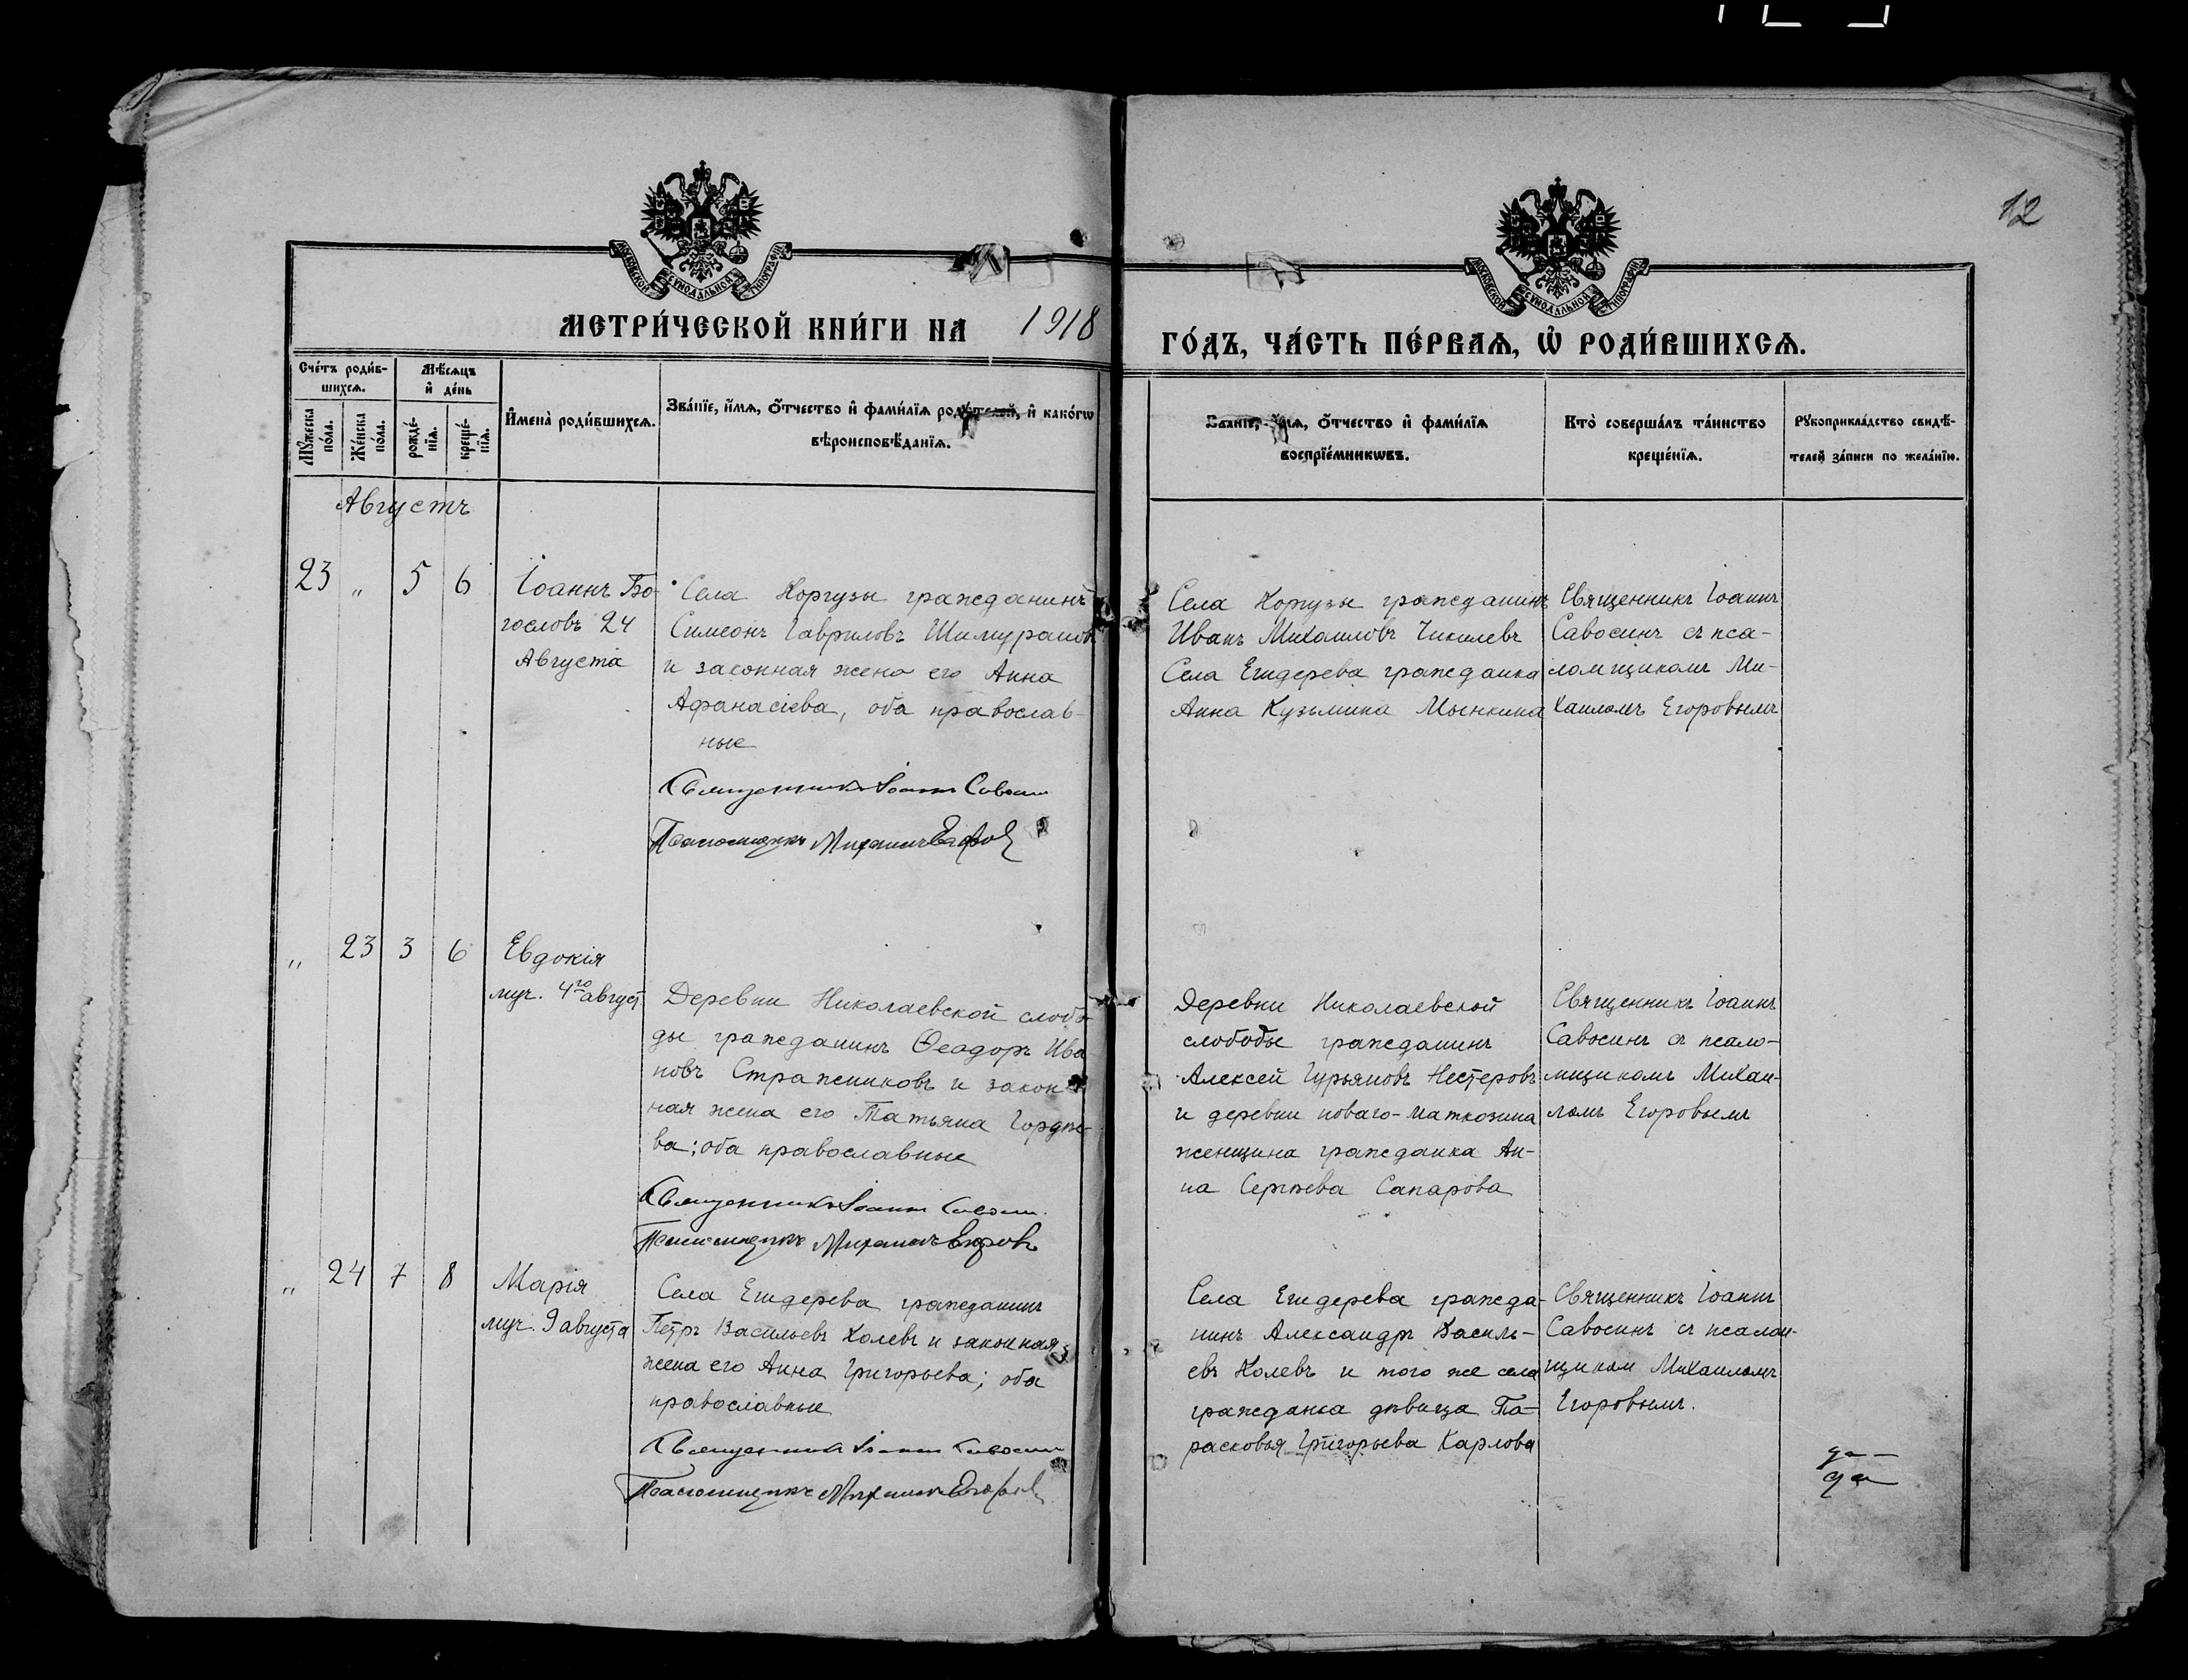 12
МОСКОВСКОЙ СѴНОДАЛЬНОЙ ТИПОГРАФІИ
МОСКОВСКОЙ СѴНОДАЛЬНОЙ ТИПОГРАФІИ
МЕТРИ́ЧЕСКОЙ КНИ́ГИ НА 1918
ГО́ДЪ, ЧА́СТЬ ПЕ́РВАѦ, Ѡ҆ РОДИ́ВШИХСѦ.
Сче́тъ роди́в-
шихсѧ.
Мѣ́сѧцъ
и҆ де́нь
Мꙋ́жеска
по́ла.
Же́нска
по́ла.
рожде́-
нїѧ.
креще́-
нїѧ.
И҆мена̀ роди́вшихсѧ.
Зва́нїе, и҆́мѧ, ѻ҆́тчество и҆ фами́лїѧ роди́телей, и҆ како́гѡ
вѣроисповѣ́данїѧ.
Зва́нїе, и҆́мѧ, ѻ҆́тчество и҆ фами́лїѧ
воспрїе́мникѡвъ.
Кто̀ соверша́лъ та́инство
креще́нїѧ.
Рꙋкоприкла́дство свидѣ́-
телей за́писи по жела́нїю.
Августъ
23 „ 5 6
Іоаннъ Бо-
гословъ 24
Августа
Села Коргузы гражданинъ
Симеонъ Гавриловъ
и законная жена его Анна
Афанасіева, оба православ-
ные
Священникъ Іоаннъ Савосин
Псаломщикъ Михаилъ Егоров
Села Коргузы гражданинъ
Иванъ Михаиловъ Чикилевъ
Села Егидерева гражданка
Анна Кузьмина Мынкина
Священникъ Іоаннъ
Савосинъ съ пса-
ломщикомъ Ми-
хаиломъ Егоровымъ
„ 23 3 6
Евдокія
муч. 4го август.
Деревни Николаевской слобо-
ды гражданинъ Ѳеодоръ Ива-
новъ Стражниковъ и закон-
ная жена его Татьяна Гордѣе-
ва; оба православные
Священникъ Іоаннъ Савосин.
Псаломщикъ Михаилъ Егоровъ
Деревни Николаевской
слободы гражданинъ
Алексей Гурьяновъ Нестеровъ
и деревни новаго-Маткозина
женщина гражданка Ан-
на Сергѣева Сапарова
Священникъ Іоаннъ
Савосинъ съ псало-
мщикомъ Михаи-
ломъ Егоровымъ
„ 24 7 8
Марія
муч. 9 августа
Села Егидерева гражданинъ
Петръ Васильевъ Колевъ и законная
жена его Анна Григорьева; оба
православные
Священникъ Іоаннъ Савосин
Псаломщикъ Михаилъ Егоров
Села Егидерева гражда-
нинъ Александръ Василь-
евъ Колевъ и того же села
гражданка дѣвица Па-
расковья Григорьева Карлова
Священникъ Іоаннъ
Савосинъ съ псалом-
щиком Михаиломъ
Егоровымъ.